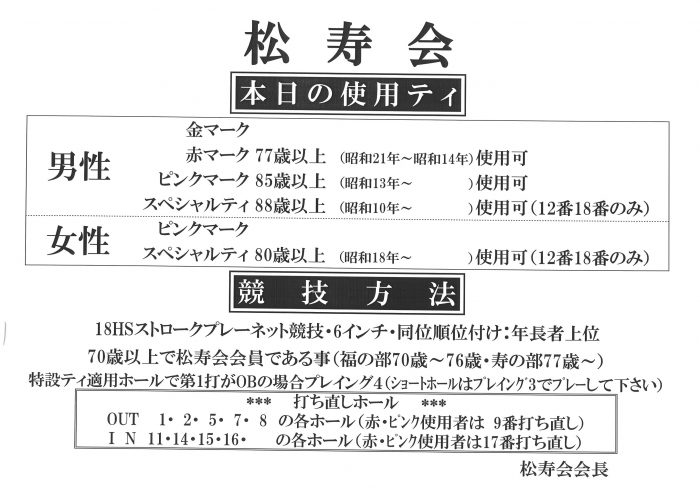 松寿会
本日の使用ティ
金マーク
男性 赤マーク 77歳以上 (昭和21年～昭和14年)使用可
ピンクマーク 85歳以上 (昭和13年～ )使用可
スペシャルティ 88歳以上 (昭和10年～ )使用可(12番18番のみ)
女性 ピンクマーク
スペシャルティ 80歳以上 (昭和18年～ )使用可(12番18番のみ)
競技方法
18HSストロークプレーネット競技・6インチ・同位順位付け:年長者上位
70歳以上で松寿会会員である事(福の部70歳～76歳・寿の部77歳～)
特設ティ適用ホールで第1打がOBの場合プレイング4(ショートホールはプレイング3でプレーして下さい)
*** 打ち直しホール ***
OUT 1・2・5・7・8 の各ホール(赤・ピンク使用者は 9番打ち直し)
I N 11・14・15・16・ の各ホール(赤・ピンク使用者は17番打ち直し)
松寿会会長